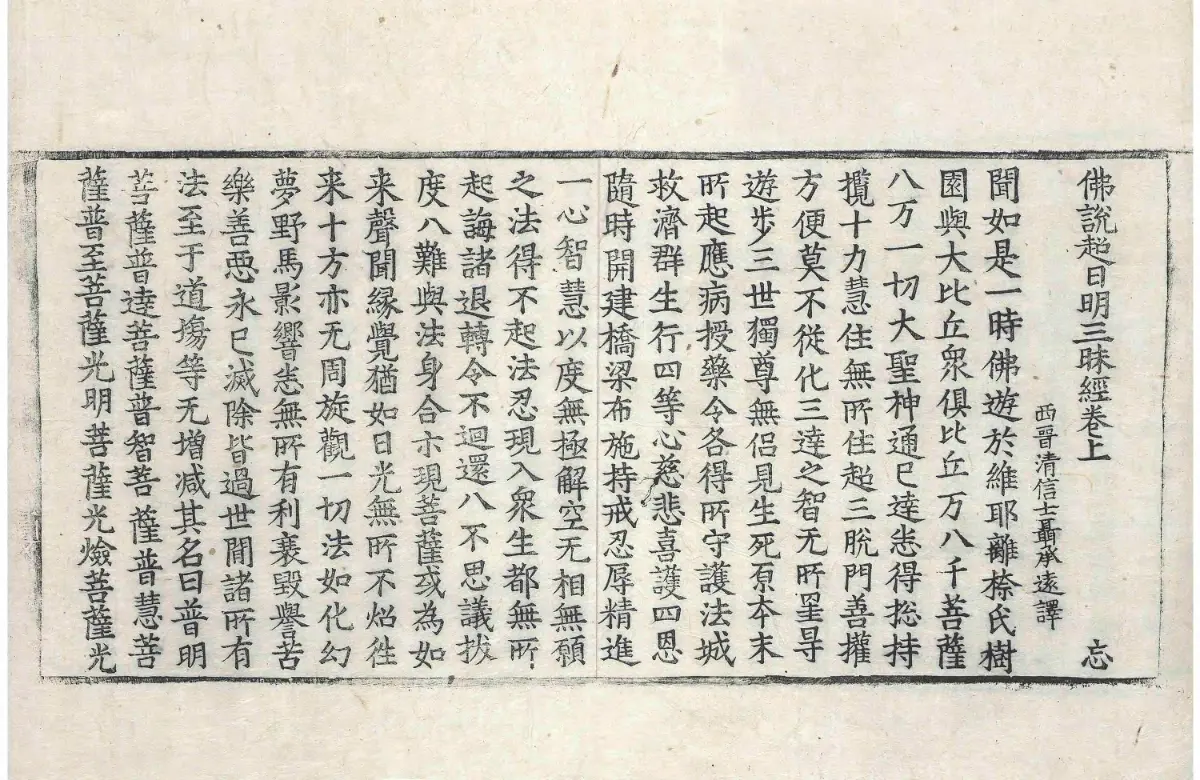 佛說超日明三昧經卷上 忘
西晉清信士聶承遠譯
聞如是一時佛遊於維耶離㮈氏樹
園與大比丘衆俱比丘万八千菩薩
八万一切大聖神通已達悉得捴持
攬十力慧住無所住超三脫門善權
方便莫不從化三達之智无所罣㝵
遊步三世獨尊無侶見生死原本末
所起應病授藥令各得所守護法城
救濟群生行四等心慈悲喜護四恩
隨時開建橋梁布施持戒忍辱精進
一心智慧以度無極解空无相無願
之法得不起法忍現入衆生都無所
起誨諸退轉令不迴還八不思議拔
度八難與法身合亦現菩薩或為如
来聲聞緣覺猶如日光無所不炤徃
来十方亦无周旋觀一切法如化幻
夢野馬影響悉無所有利衰毀譽苦
樂善惡永已滅除皆過世間諸所有
法至于道塲等无增减其名曰普明
菩薩普達菩薩普智菩薩普慧菩
薩普至菩薩光明菩薩光㷿菩薩光